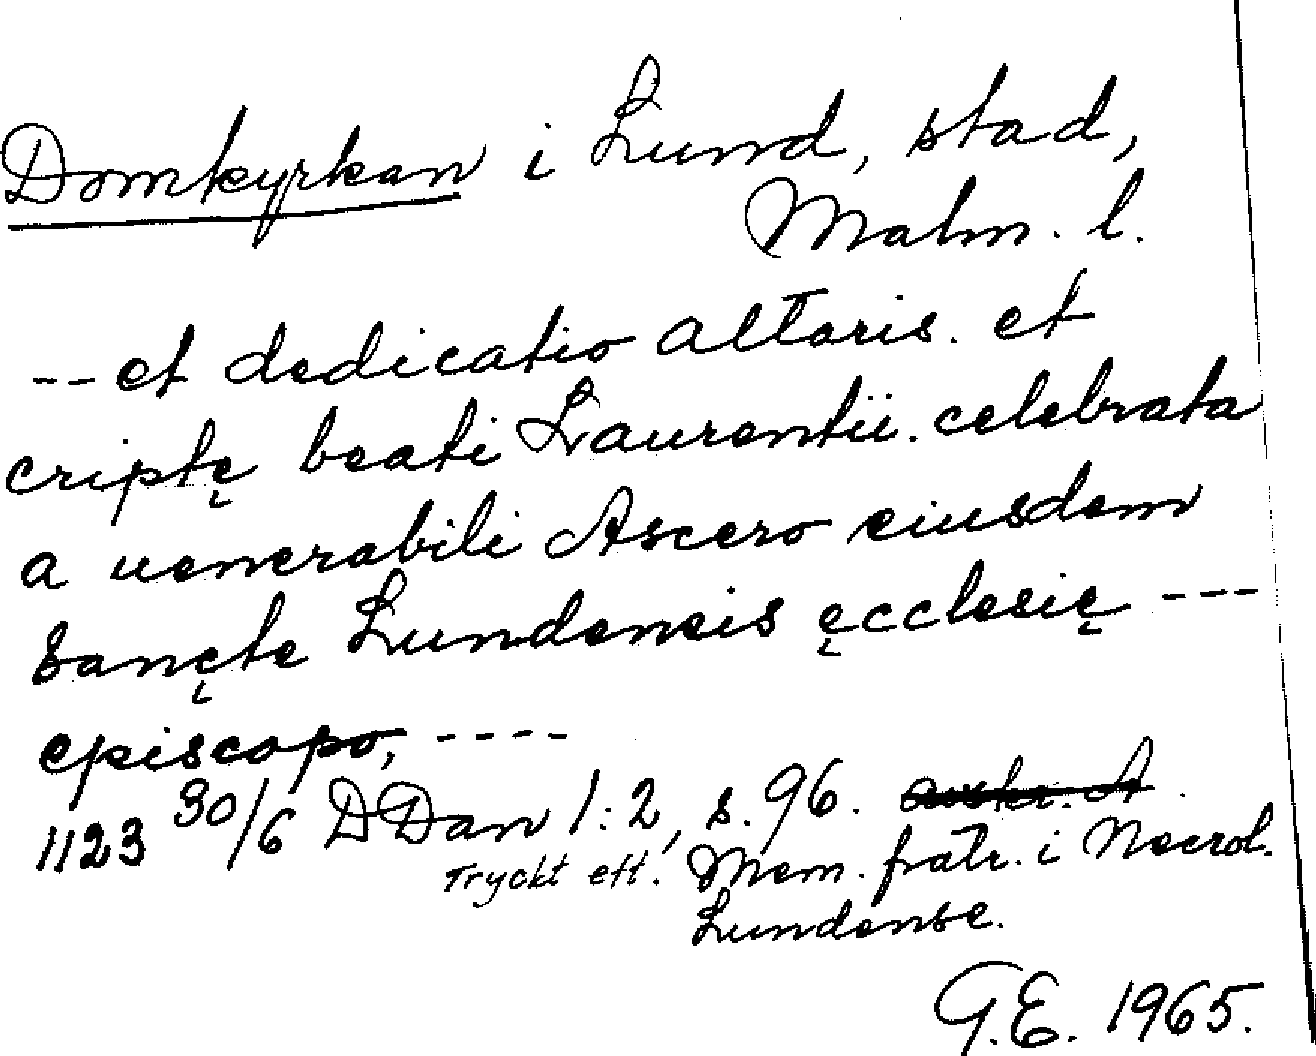 Domkyrkan i Lund, stad,
Malm. l.
-- et dedicatio altaris. et
criptę beati Laurentii. celebrata
a uenerabili Ascero eiusdem
sançte Lundensis ęcclesię ---
episcopo, ----
1123 30/6 DDan 1:2, s. 96. avskr. A.
Tryckt eft. Mem. fratr. i Necrol.
Lundense.
G.E. 1965.